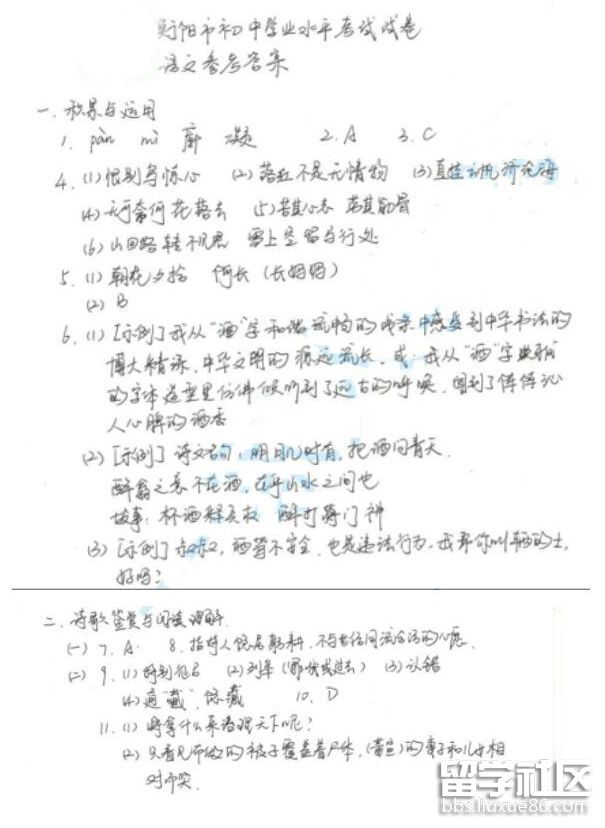 衡阳市初中学业水平考试试卷
语文参考答案
一、积累与运用
1. pàn mì 廓 凝 2. A 3. C
4. (1) 恨别鸟惊心 (2) 落红不是无情物 (3) 直挂云帆济沧海
(4) 无可奈何花落去 (5) 苦其心志 劳其筋骨
(6) 山回路转不见君 雪上空留马行处
5. (1) 朝花夕拾 阿长 (长妈妈)
(2) B
6. (1) [示例] 我从“酒”字和谐流畅的线条中感受到中华书法的
博大精深、中华文明的源远流长。或: 我从“酒”字典雅
的字体造型里仿佛倾听到了远古的呼唤, 闻到了阵阵沁
人心脾的酒香
(2) [示例] 诗文名句: 明月几时有, 把酒问青天.
醉翁之意不在酒, 在乎山水之间也
故事: 杯酒释兵权 醉打蒋门神
(3) [示例] 叔叔, 酒驾不安全, 也是违法行为, 我帮你叫辆的士,
好吗?
二、诗歌鉴赏与阅读理解
(一) 7. A 8. 指诗人隐居躬耕, 不与世俗同流合污的心愿.
(二) 9. (1) 特别 (2) 到 (3) 认错
(4) 通“藏” 隐藏 10. D
11. (1) 将拿什么来治理天下呢?
(2) 只看见布做的被子覆盖着尸体, (董宣) 的妻子和儿女相
对而哭.
留学社区
bbs.liuxue86.com